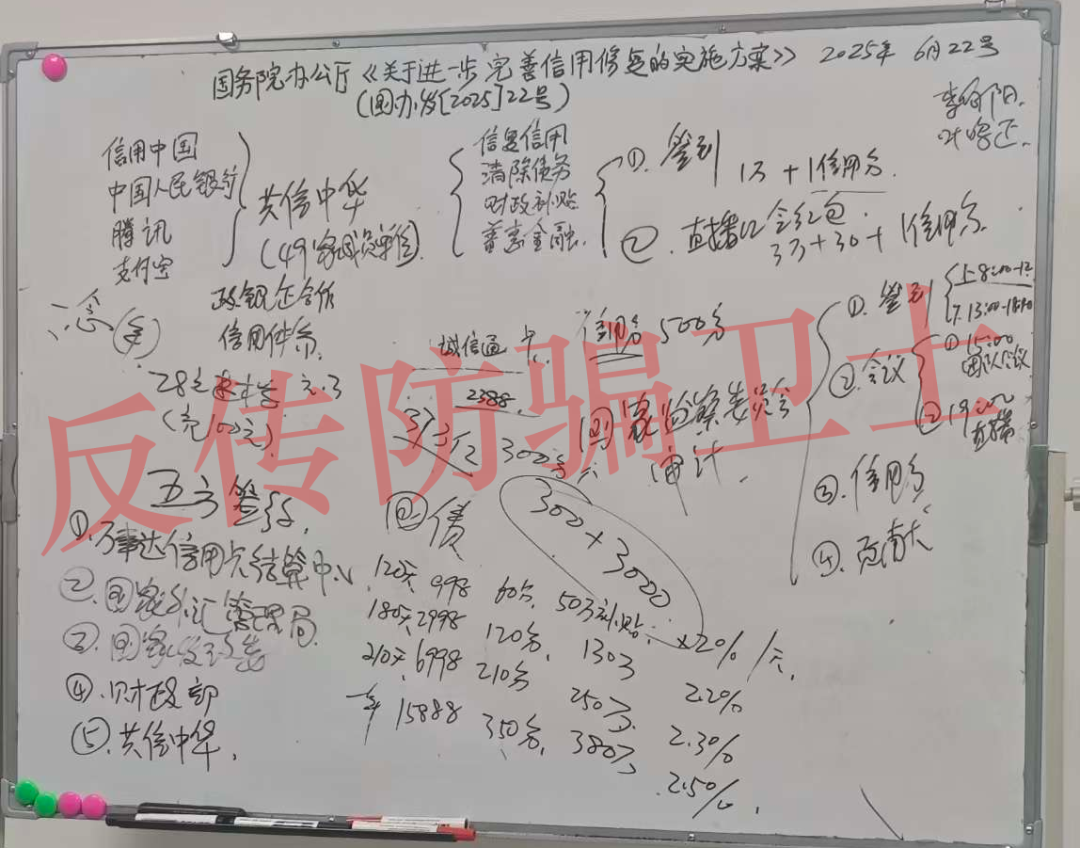 国务院办公厅《关于进一步完善信用修复的实施方案》 2025年 6月22号
(国办发[2025]22号)
信用中国
中国人民银行
腾讯
支付宝
共信中华
(49家
政银企合作
信用体系
信用
清除债务
财政补贴
普惠金融
①. 签到 1万 + 1信用分.
②. 直播 红包
3万+30+1信用分.
诚信通 卡
信用分 500分
2388
国家监察委员会
审计.
300+3000
①. 签到
上8:00-12
下13:00-18:00
②. 会议
①15:00
团队会议
②19:00
直播
③. 信用分
④. 贡献
五方签
①. 万事达信用卡结算中心
②. 国家外汇管理局.
③. 国家发改委
④. 财政部
⑤. 共信中华.
国债
120天 998 60分. 50万补贴. ×2%/天.
180天2998 120分. 130万 2.2%
210天.6998 210分 250万. 2.3%
一年 15888 350分. 380万 2.5%.
反传防骗卫士